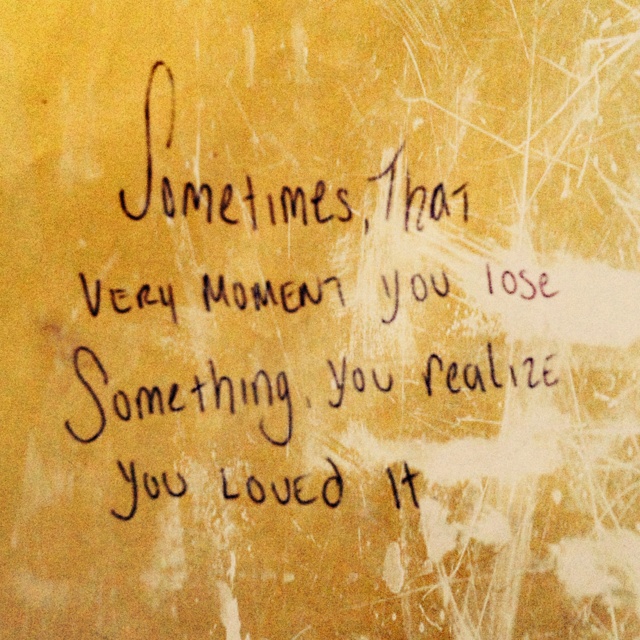 Sometimes, That
VERY MOMENT you lose
Something, you realize
you LOVED It